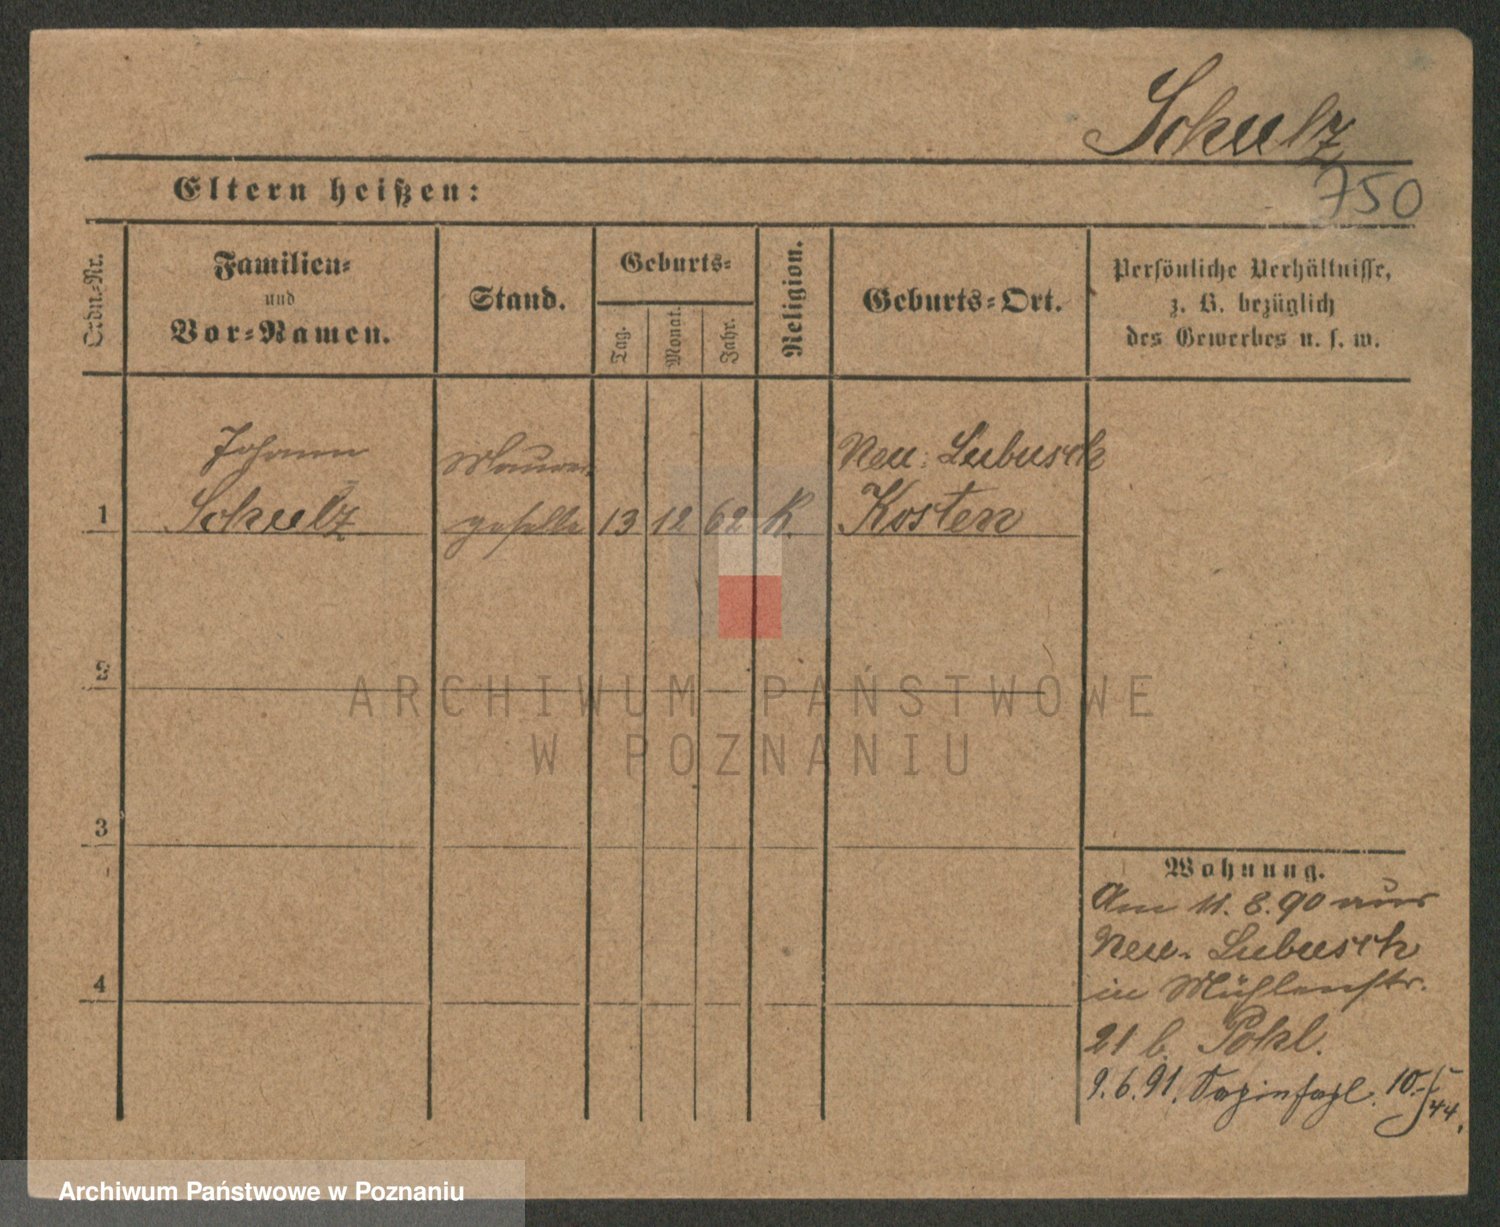 Schulz
750
Eltern heißen:
Ordn.-Nr.
Familien-
und
Vor-Namen.
Stand.
Geburts-
Tag.
Monat.
Jahr.
Religion.
Geburts-Ort.
Persönliche Verhältnisse,
z. B. bezüglich
des Gewerbes u. s. w.
Johann
Schulz
Maurer-
geselle
1
13
12
62
K.
Neu-Lubusch
Kosten
2
3
4
ARCHIWUM PAŃSTWOWE
W POZNANIU
Wohnung.
Am 11. 8. 90 aus
Neu-Lubusch
in Mühlenstr.
21 b. Pohl.
9.6.91. 10
44.
Archiwum Państwowe w Poznaniu